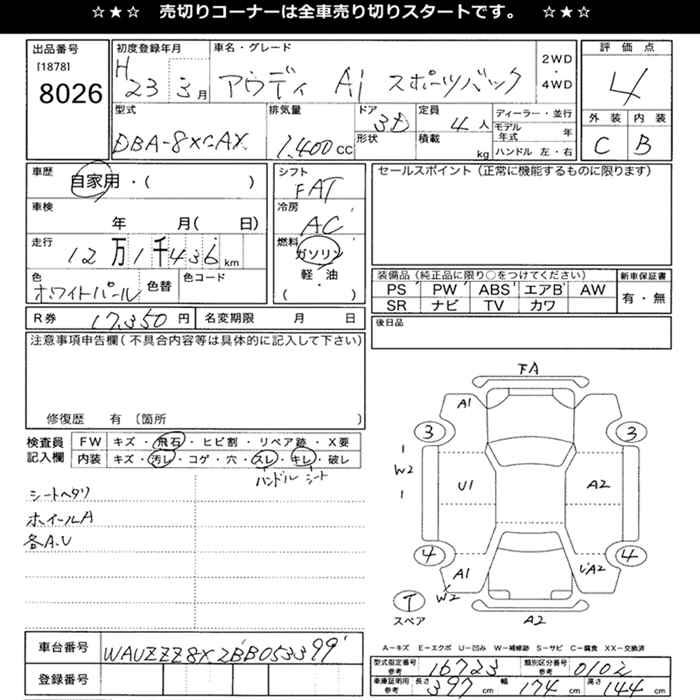 ☆★☆ 売切りコーナーは全車売り切りスタートです。 ☆★☆
出品番号
[1878]
8026
初度登録年月
H 23 3 月
車名・グレード
アウディ A1 スポーツバック
2WD
・
4WD
評価点
4
外装 内装
C B
型式
DBA-8XCAX
排気量
1,400 CC
ドア
3D
形状
定員
4 人
積載
kg
ディーラー・並行
モデル年式 年
ハンドル 左・右
車歴
自家用・( )
シフト
FAT
車検
年 月( 日)
冷房
AC
走行
12万1千436 km
燃料
ガソリン
軽・油
・
( )
色
ホワイトパール
色替
色コード
セールスポイント(正常に機能するものに限ります)
装備品(純正品に限り○をつけてください)
PS PW ABS エアB AW
SR ナビ TV カワ
新車保証書
有・無
R券 17,350 円
名変期限 月 日
後日品
注意事項申告欄(不具合内容等は具体的に記入して下さい)
修復歴 有 〔箇所 〕
検査員
記入欄
FW キズ・飛石・ヒビ割・リペア跡・X要
内装 キズ・汚レ・コゲ・穴・スレ・キレ・破レ
ハンドル シート
シートヘタリ
ホイールA
各A.U
FA
A1
3 3
W2
U1 A2
4 4
A1
W2
A2
T
スペア
A2
車台番号 WAUZZZ8X2BB053399
登録番号
A－キズ E－エクボ U－凹み W－補修跡 S－サビ C－腐食 XX－交換済
型式指定番号
参考
16723
類別区分番号
参考
0102
車庫証明用
参考
長さ 397 cm 幅 174 cm 高さ 144 cm